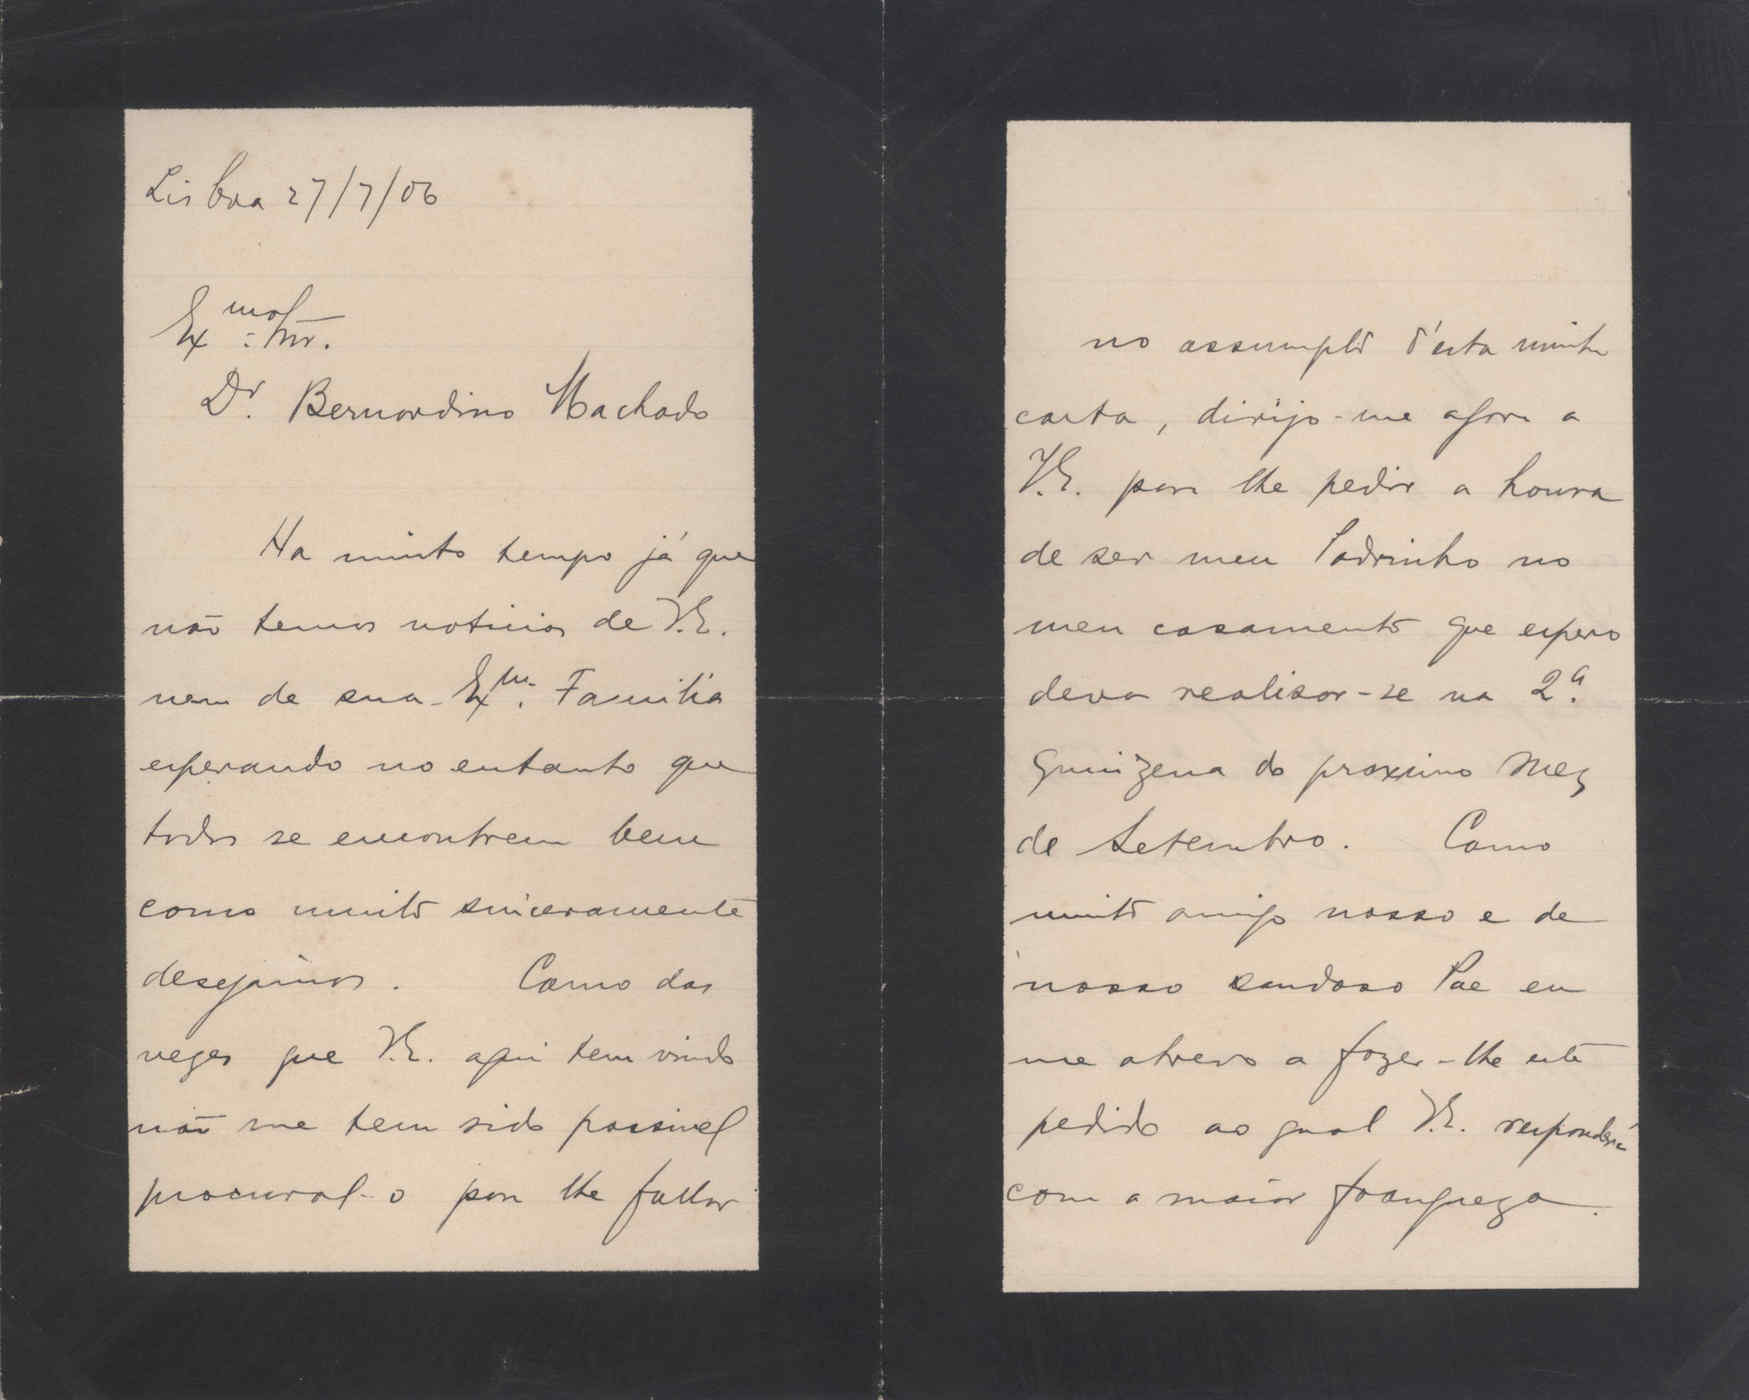 Lisboa 27/7/06
Exmo Snr.
Dr. Bernardino Machado
Ha muito tempo já que
não temos noticias de V.E.
nem de sua Exma. Familia
esperando no entanto que
todos se encontrem bem
como muito sinceramente
desejamos. Como das
vezes que V.E. aqui tem vindo
não me tem sido possivel
procural-o para lhe fallar
no assumpto d'esta minha
carta, dirijo-me agora a
V.E. para lhe pedir a honra
de ser meu Padrinho no
meu casamento que espero
deva realisar-se na 2ª
Quinzena do proximo Mez
de Setembro. Como
muito amigo nosso e de
nosso saudoso Pae eu
me atrevo a fazer-lhe este
pedido ao qual V.E. responderá
com a maior franqueza.